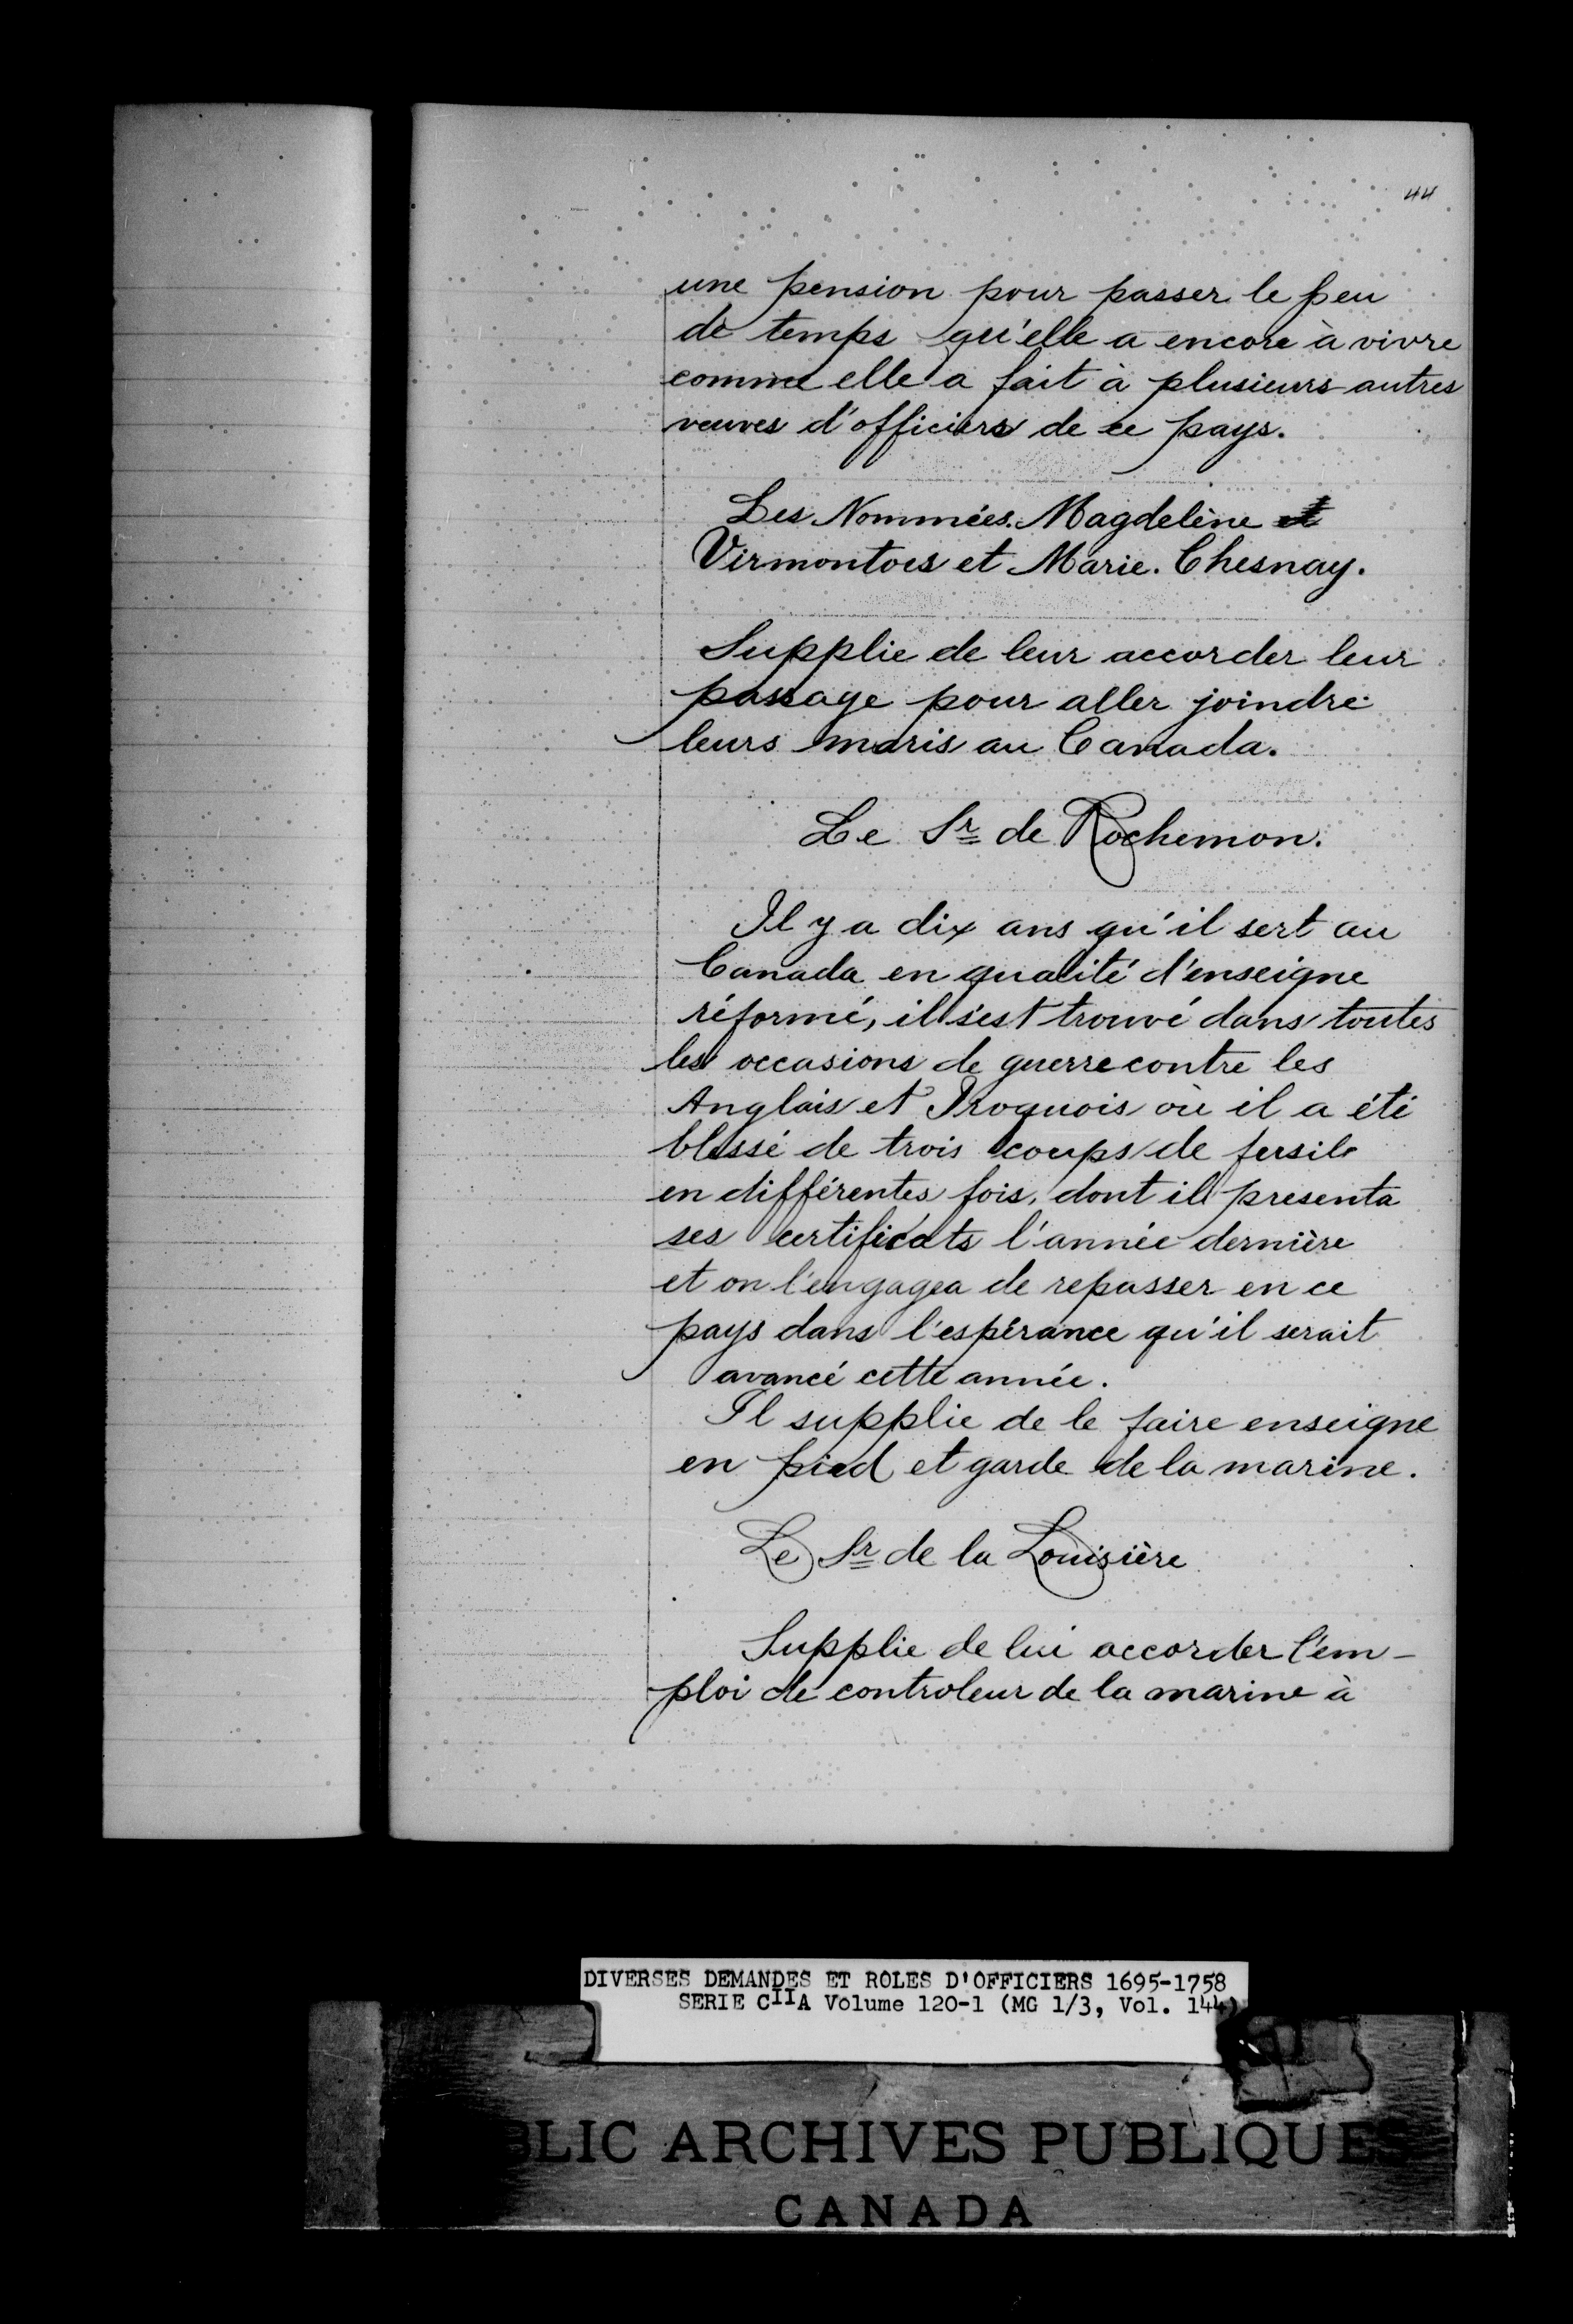 44
une pension pour passer le peu
de temps qu'elle a encore à vivre
comme elle a fait à plusieurs autres
veuves d'officiers de ce pays.
Les Nommées. Magdelène et
Virmontoes et Marie. Chesnay.
Supplie de leur accorder leur
passage pour aller joindre
leurs maris au Canada.
Le Sr de Rochemon.
Il y a dix ans qu'il sert au
Canada en qualité d'enseigne
réformé, il s'est trouvé dans toutes
les occasions de guerre contre les
Anglais et Iroquois où il a été
blessé de trois coups de fusil
en différentes fois, dont il presenta
ses certificats l'année dernière
et on l'engagea de repasser en ce
pays dans l'espérance qu'il serait
avancé cette année.
Il supplie de le faire enseigne
en pied et garde de la marine.
Le Sr de la Louisière
Supplie de lui accorder l'em-
ploi de controleur de la marine à
DIVERSES DEMANDES ET ROLES D'OFFICIERS 1695-1758
SERIE CIIA Volume 120-1 (MG 1/3, Vol. 144)
BLIC ARCHIVES PUBLIQUES
CANADA